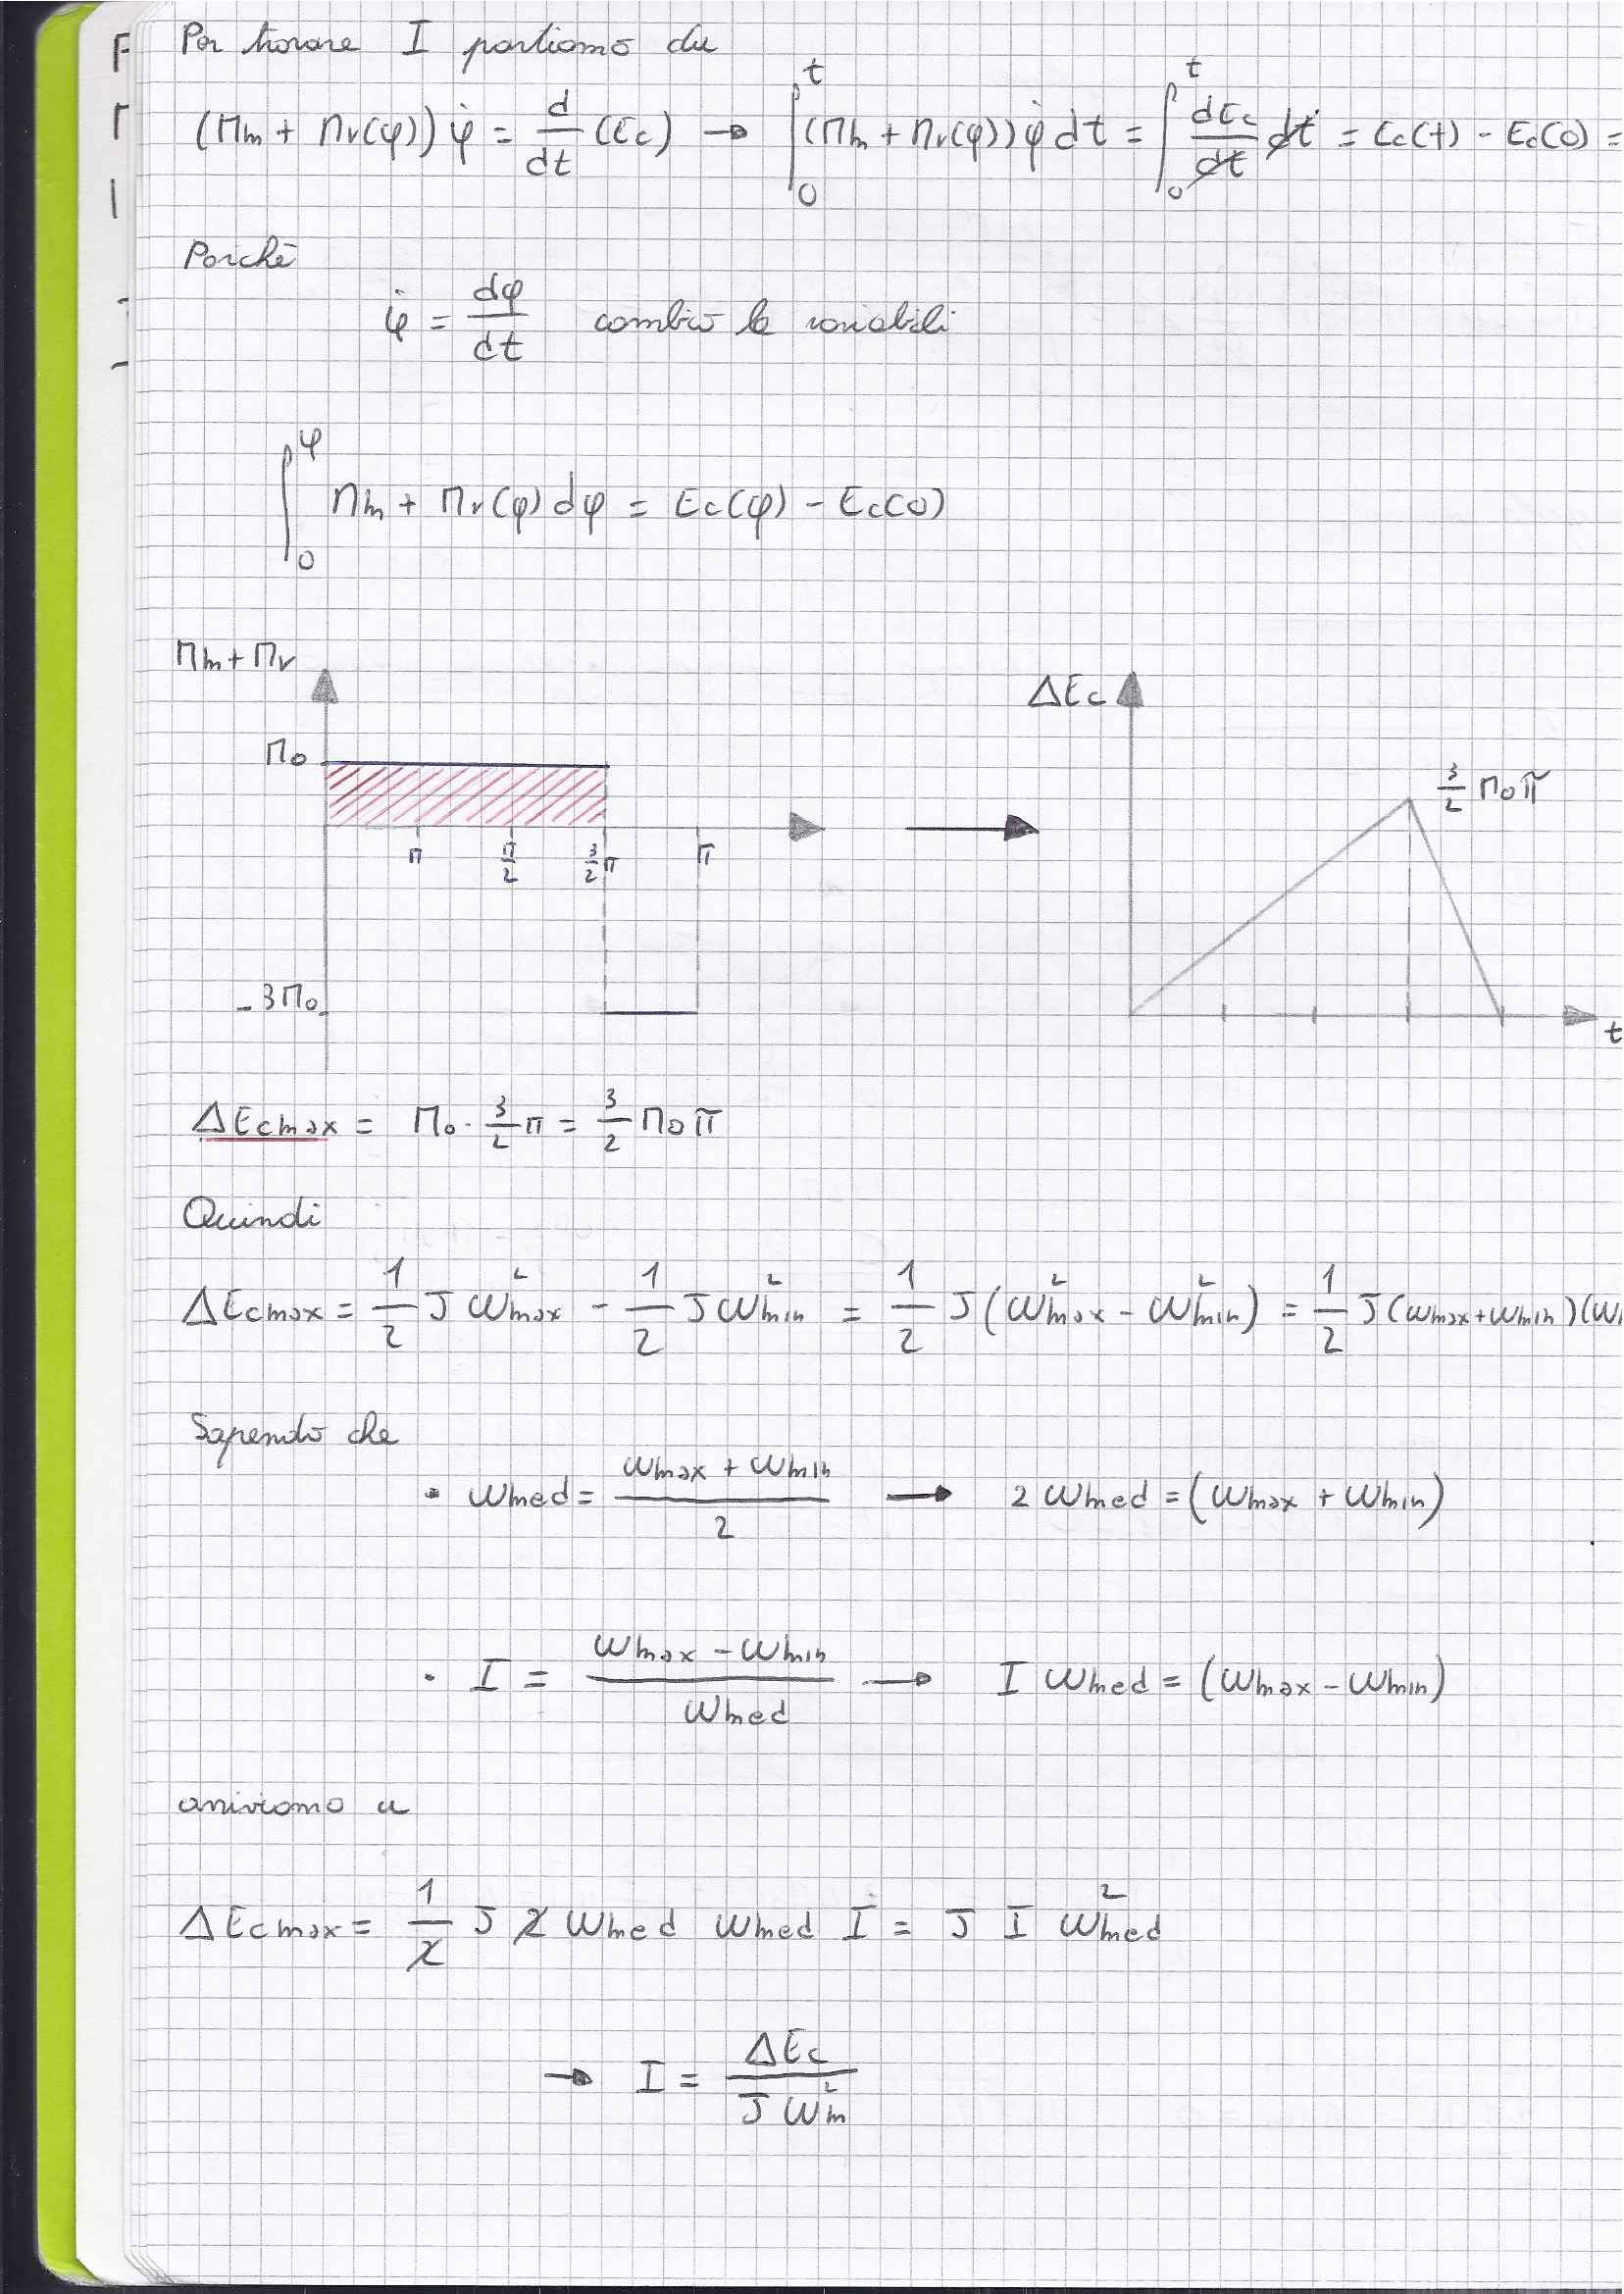 Per trovare I partiamo da
(Mm + Mr(φ)) φ̇ = d/dt (Ec) → ∫₀ᵗ (Mm + Mr(φ)) φ̇ dt = ∫₀ᵗ dEc/dt dt = Ec(t) - Ec(0) =
Poiché
φ̇ = dφ/dt cambio le variabili
∫₀^φ Mm + Mr(φ) dφ = Ec(φ) - Ec(0)
Mm + Mr
ΔEc
M0
3/2 M0 π
π π/2 3/2 π π
-3M0
t
ΔEcmax = M0 · 3/2 π = 3/2 M0 π
Quindi
ΔEcmax = 1/2 J ω²max - 1/2 J ω²min = 1/2 J (ω²max - ω²min) = 1/2 J (ωmax + ωmin)(ω
Sapendo che
• ωmed = (ωmax + ωmin)/2 → 2 ωmed = (ωmax + ωmin)
• I = (ωmax - ωmin)/ωmed → I ωmed = (ωmax - ωmin)
arriviamo a
ΔEcmax = 1/2 J 2 ωmed ωmed I = J I ω²med
→ I = ΔEc / J ω²m